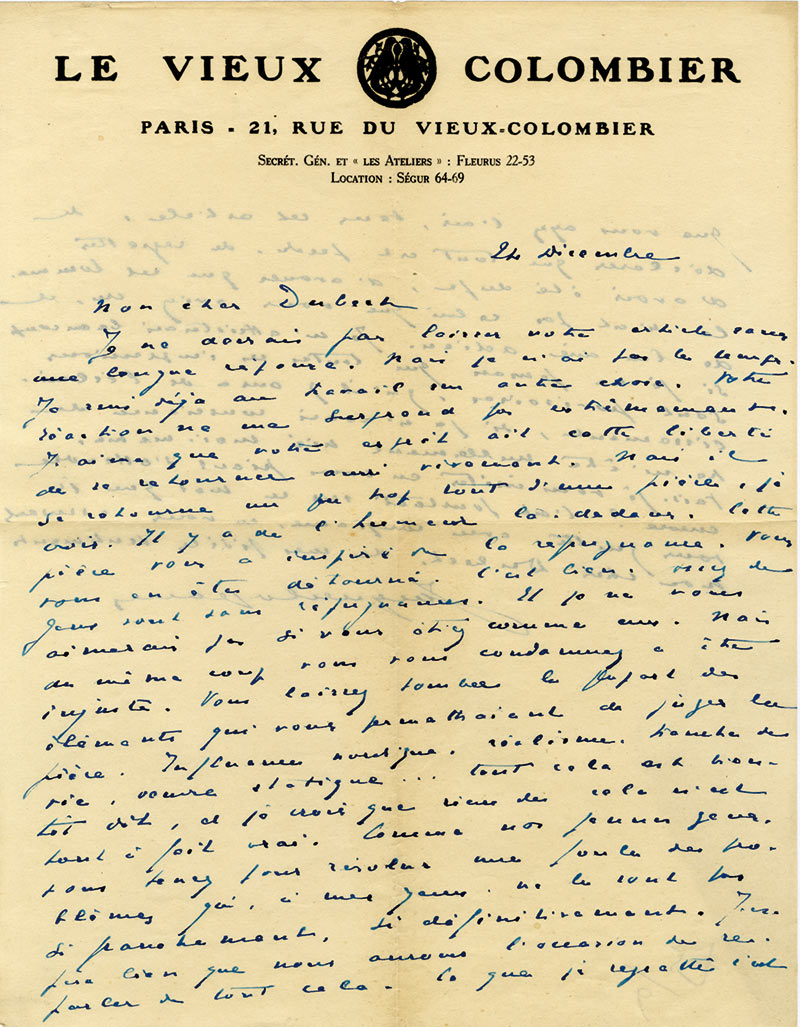 LE VIEUX COLOMBIER
PARIS - 21, RUE DU VIEUX-COLOMBIER
Secrét. Gén. et « les Ateliers » : Fleurus 22-53
Location : Ségur 64-69
24 Décembre
Mon cher Dubech
Je ne devrais pas laisser votre article sans
une longue réponse. Mais je n'ai pas le temps.
Je suis déjà au travail sur autre chose. Votre
réaction ne me surprend pas extrêmement.
J'aime que votre esprit ait cette liberté
de se retourner aussi vivement. Mais il
se retourne un peu trop tout d'une pièce, je
crois. Il y a de l'humeur là-dedans. Cette
pièce vous a inspiré de la répugnance. Vous
vous en êtes détourné. C'est bien. Assez de
gens sont sans répugnances. Et je ne vous
aimerais pas si vous étiez comme eux. Mais
du même coup vous vous condamnez à être
injuste. Vous laissez tomber la plupart des
éléments qui vous permettaient de juger la
pièce. Influence nordique, réalisme, tranche de
vie, oeuvre statique... tout cela est bien-
tôt dit, et je crois que rien de cela n'est
tout à fait vrai. Comme nos jeunes gens,
vous tenez pour résolus une foule de pro-
blèmes qui, à mes yeux, ne le sont pas
si franchement, si définitivement. J'es-
père bien que nous aurons l'occasion de re-
parler de tout cela. Ce que je regrette c'est